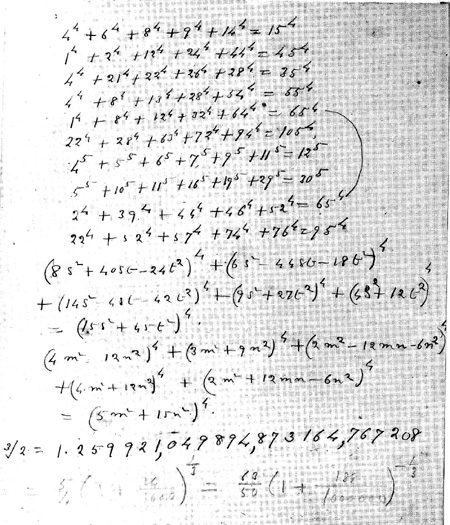 4⁴ + 6⁴ + 8⁴ + 9⁴ + 14⁴ = 15⁴
1⁴ + 2⁴ + 12⁴ + 24⁴ + 44⁴ = 45⁴
4⁴ + 21⁴ + 22⁴ + 26⁴ + 28⁴ = 35⁴
4⁴ + 8⁴ + 13⁴ + 28⁴ + 54⁴ = 55⁴
1⁴ + 8⁴ + 12⁴ + 32⁴ + 64⁴ = 65⁴
22⁴ + 28⁴ + 63⁴ + 72⁴ + 94⁴ = 105⁴
4⁵ + 5⁵ + 6⁵ + 7⁵ + 9⁵ + 11⁵ = 12⁵
5⁵ + 10⁵ + 11⁵ + 16⁵ + 19⁵ + 29⁵ = 30⁵
2⁴ + 39⁴ + 44⁴ + 46⁴ + 52⁴ = 65⁴
22⁴ + 52⁴ + 57⁴ + 74⁴ + 76⁴ = 95⁴
(8s² + 40st - 24t²)⁴ + (6s² - 44st - 18t²)⁴
+ (14s² - 4st - 42t²)⁴ + (9s² + 27t²)⁴ + (4s² + 12t²)⁴
= (15s² + 45t²)⁴.
(4m² - 12n²)⁴ + (3m² + 9n²)⁴ + (2m² - 12mn - 6n²)⁴
+ (4m² + 12n²)⁴ + (2m² + 12mn - 6n²)⁴
= (5m² + 15n²)⁴.
∛2 = 1.259921,049894,873164,767208
= 63/50 (1 +